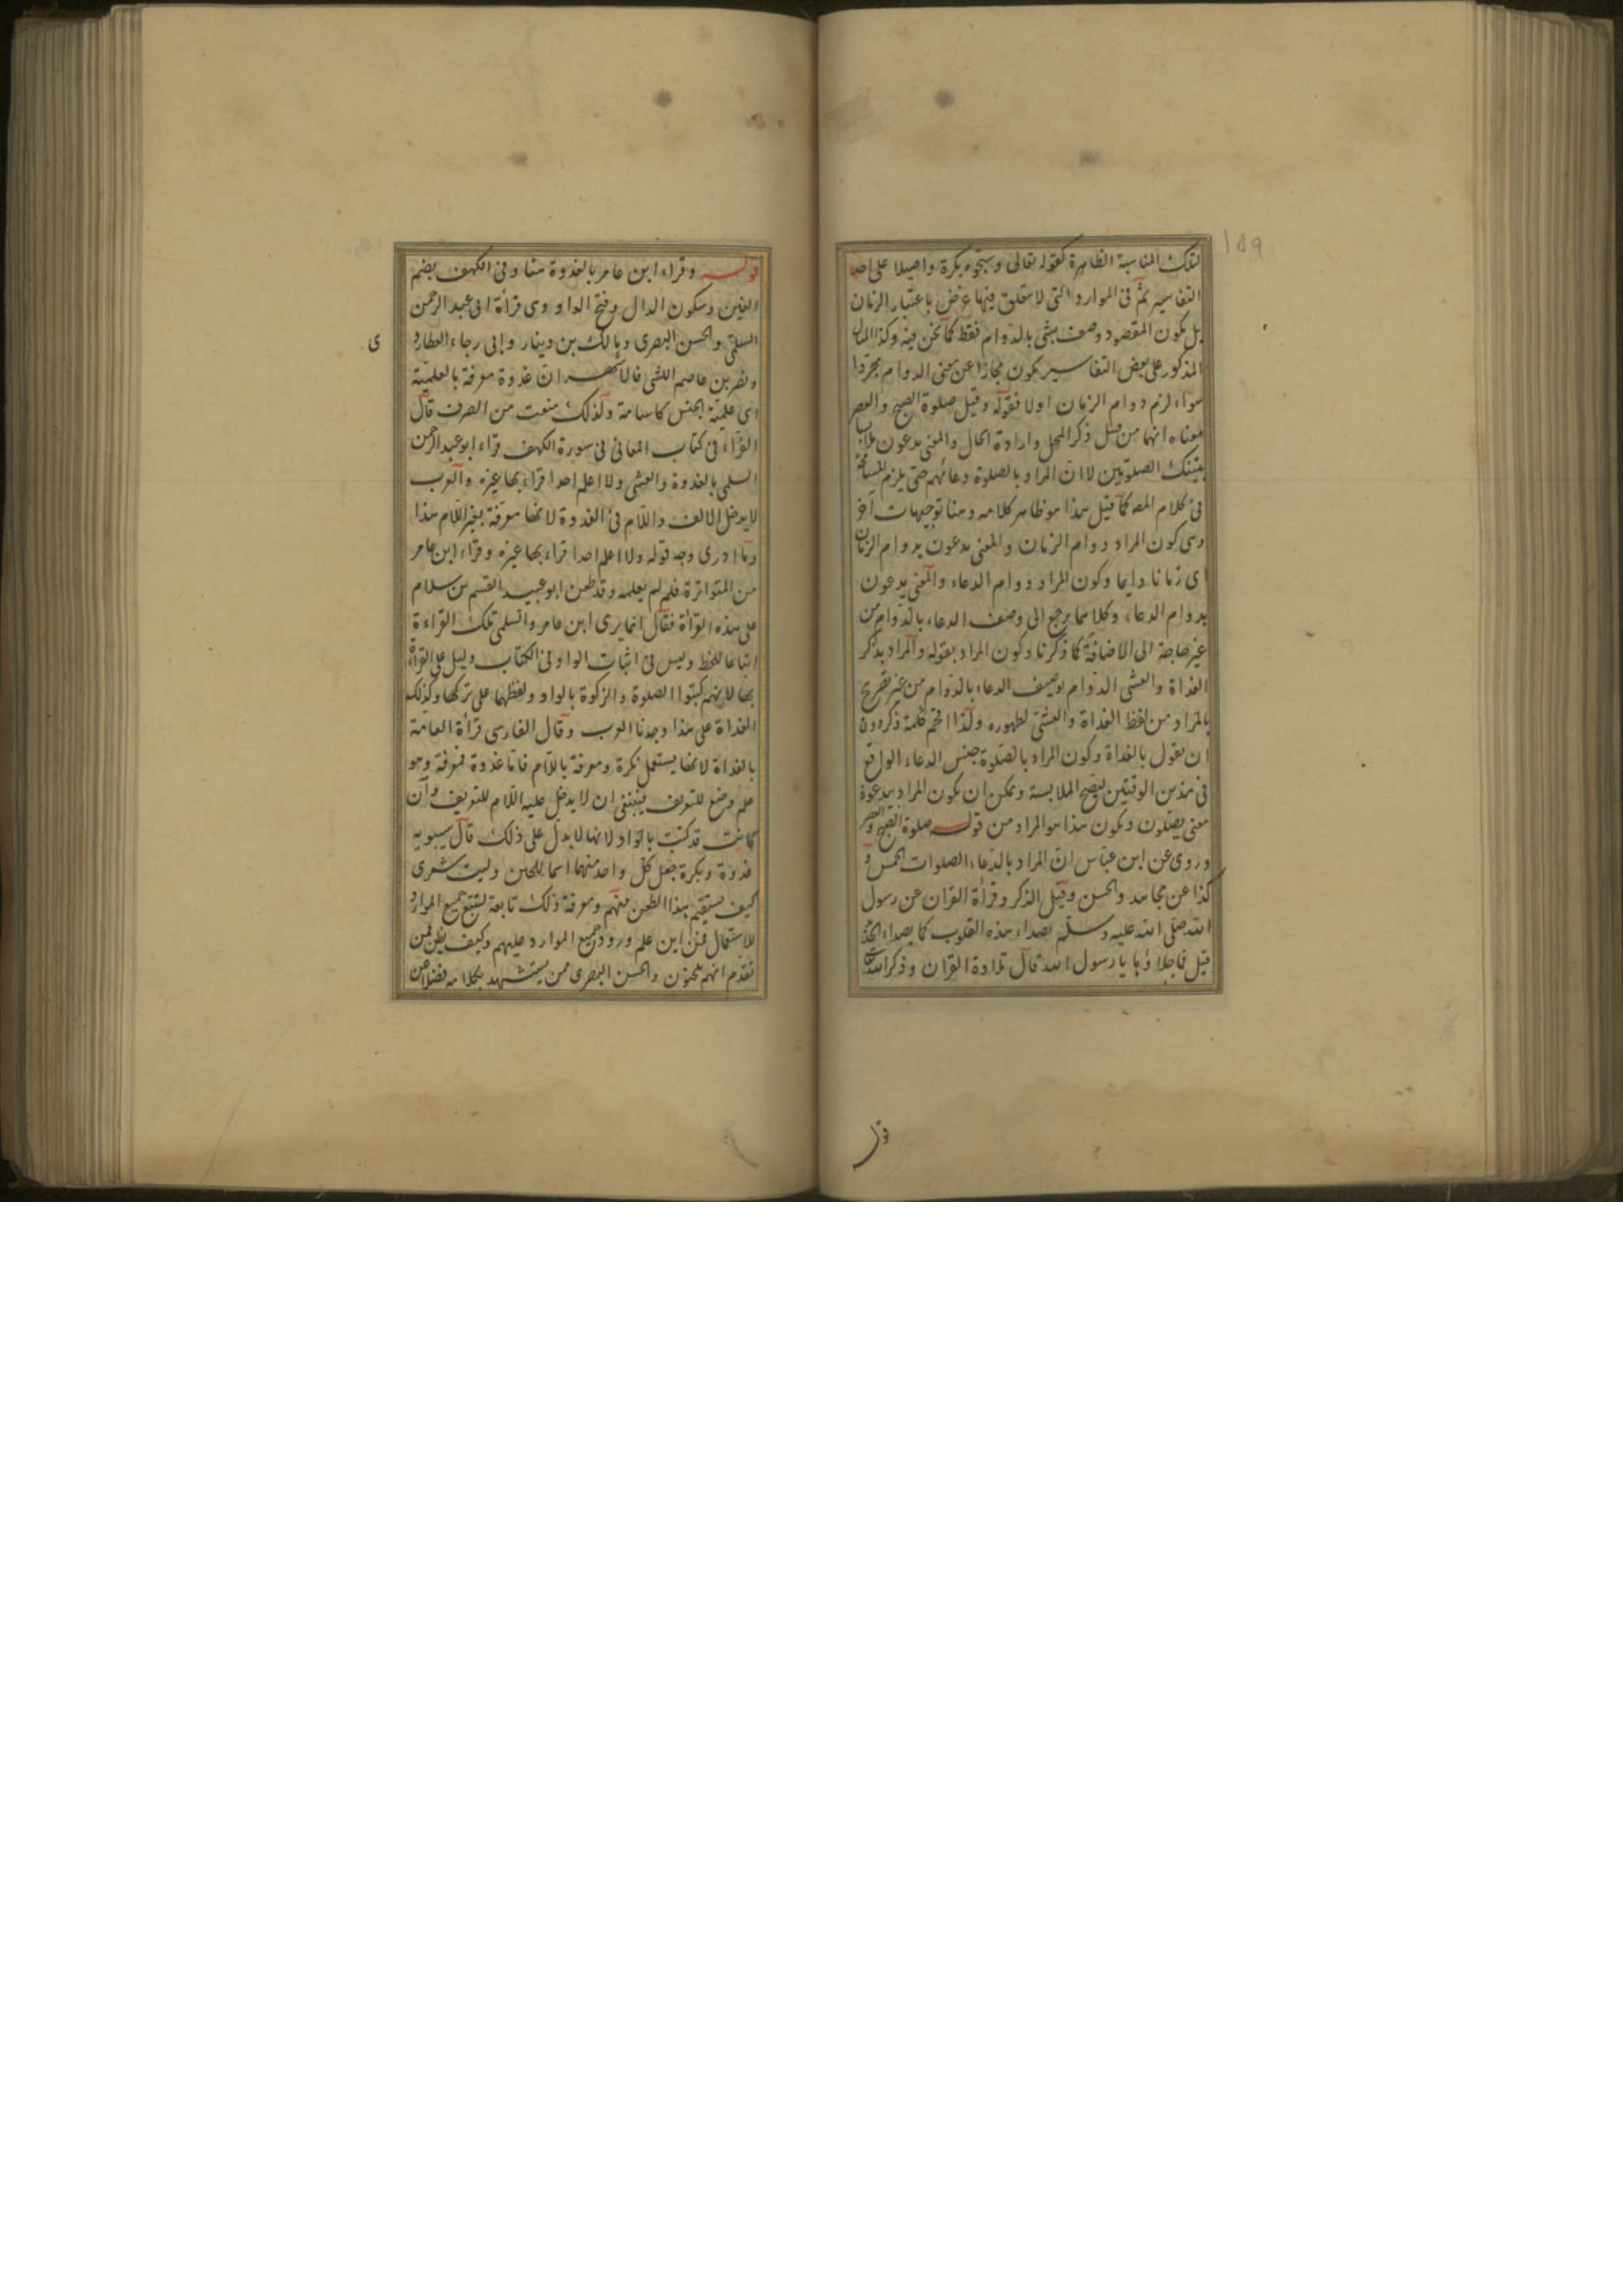 ١٥٩
لتلك المناسبة الظاهرة كقوله تعالى وسبحوه بكرة واصيلا على احد
التفاسير ثم فى الموارد التى لا يتعلق فيها غرض باعتبار الزمان
بل يكون المقصود وصف شئ بالدوام فقط كما نحن فيه وكذا المثال
المذكور على بعض التفاسير يكون مجازا عن معنى الدوام مجردا
سواء لزم دوام الزمان اولا فقوله وقيل صلوة الصبح والعصر
معناه انها من قبيل ذكر المحل وارادة الحال والمعنى يدعون
بتينك الصلوتين لا ان المراد بالصلوة دعائهم حتى يلزم
فى كلام المص كما قيل هذا هو ظاهر كلامه وهنا توجيهات آخر
وهى كون المراد دوام الزمان والمعنى يدعون بدوام الزمان
اى زمانا دايما وكون المراد دوام الدعاء والمعنى يدعون
بدوام الدعاء وكلاهما يرجع الى وصف الدعاء بالدوام من
غير حاجة الى الاضافة كما ذكرنا وكون المراد بقوله والمراد بذكر
الغداة والعشى الدوام توصيف الدعاء بالدوام من غير تصريح
بالمراد من لفظ الغداة والعشى لظهوره ولذا اقحم كلمة ذكر دون
ان يقول بالغداة وكون المراد بالصلوة جنس الدعاء الواقع
فى هذين الوقتين ليصح الملابسة ويمكن ان يكون المراد بيدعون
معنى يصلون ويكون هذا هو المراد من قوله صلوة الصبح والعصر
وروى عن ابن عباس ان المراد بالدعاء الصلوات الخمس و
كذا عن مجاهد والحسن وقيل الذكر وقرأة القران عن رسول
الله صلى الله عليه وسلم يصداء هذه القلوب كما يصداء الحديد
قيل فما جلاؤها يا رسول الله قال تلاوة القران وذكر الله
قوله
قوله وقراء ابن عامر بالغدوة هنا وفى الكهف بضم
الغين وسكون الدال وفتح الواو وهى قرأة ابى عبد الرحمن
السلمى والحسن البصرى ومالك بن دينار وابى رجاء العطارد
ى
ونصر بن عاصم الليثى فالاشهر ان غدوة معرفة بالعلمية
اى علمية الجنس كاسامة ولذلك منعت من الصرف قال
الفراء فى كتاب المعانى فى سورة الكهف قراء ابو عبد الرحمن
السلمى بالغدوة والعشى ولا اعلم احدا قراء بها غيره والعرب
لا يدخل الالف واللام فى الغدوة لانها معرفة بغير اللام هذا
وما ادرى وجه قوله ولا اعلم احدا قراء بها غيره وقراء ابن عامر
من المتواترة فلم لم يعلمه وقد طعن ابو عبيد القسم بن سلام
على هذه القرأة فقال انما يرى ابن عامر والسلمى تلك القراءة
اتباعا للخط وليس فى اثبات الواو فى الكتاب دليل على القرأة
بها لانهم كتبوا الصلوة والزكوة بالواو ولفظهما على تركها وكذلك
الغداة على هذا وجدنا العرب وقال الفارسى قرأة العامة
بالغداة لانها يستعمل نكرة ومعرفة باللام فاما غدوة فمعرفة وهو
علم وضع للتعريف فينبغى ان لا يدخل عليه اللام للتعريف وان
كانت قد كتبت بالواو لانها لا يدل على ذلك قال سيبويه
غدوة وبكرة جعل كل واحد منهما اسما للحين وليت شعرى
كيف يستقيم هذا الطعن منهم ومعرفة ذلك تابعة لتتبع جميع الموارد
للاستعمال فمن اين علم ورود جميع الموارد عليهم وكيف يظن بمن
تقدم انهم يلحنون والحسن البصرى ممن يستشهد بكلامه فضلا عن